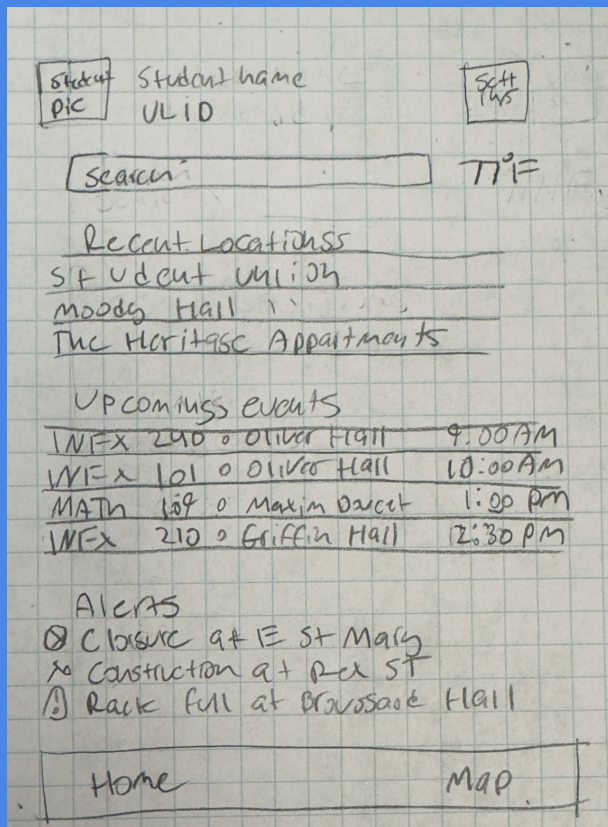 Student pic
Student name
ULID
Settings
Search
77°F
Recent Locationss
Student Union
Moody Hall
The Heritage Appartments
Upcomingss events
INFX 240 o Oliver Hall 9:00 AM
INFX 101 o Oliver Hall 10:00 AM
MATH 109 o Maxim Doucet 1:00 PM
INFX 210 o Griffin Hall 2:30 PM
Alerts
Closure at E St Mary
Construction at Rex ST
Rack full at Broussard Hall
Home Map